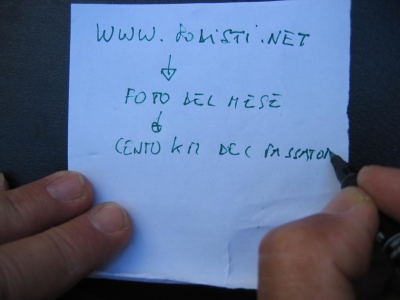 WWW.PODISTI.NET
FOTO DEL MESE
CENTO KM DEL PASSATOR